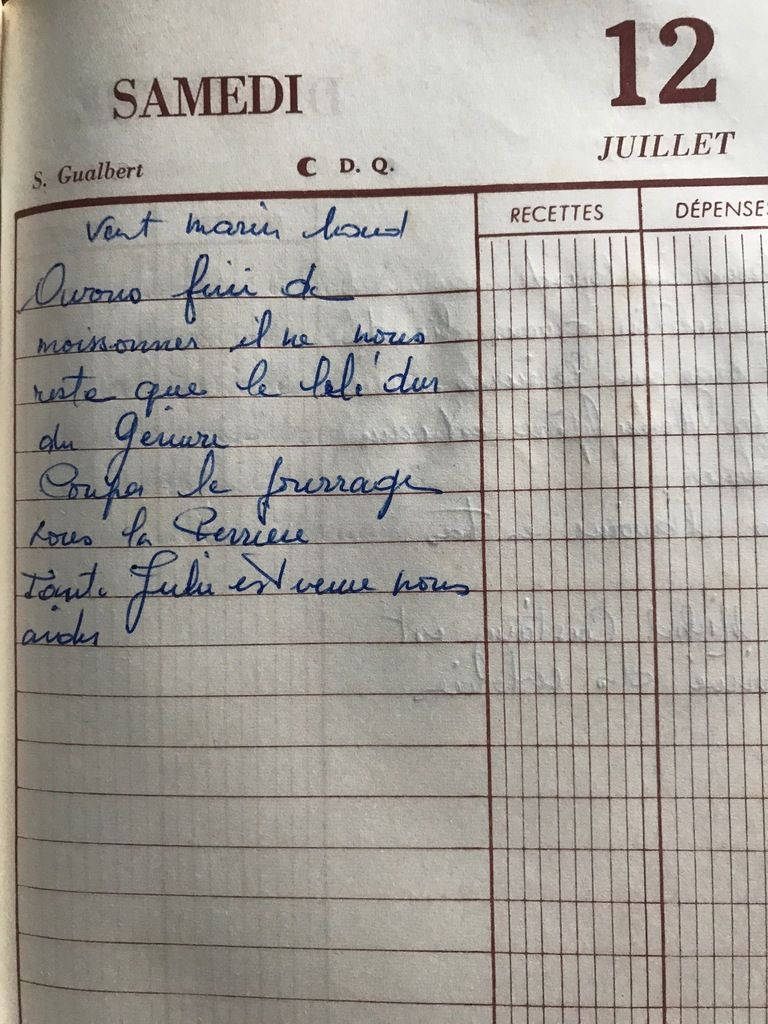 SAMEDI
12
JUILLET
S. Gualbert
C D. Q.
RECETTES
DÉPENSE
Vent marin
Avons fini de
moissonner il ne nous
reste que le blé dur
du
Coupé le fourrage
sous la
Tante Julie est venue nous
aider